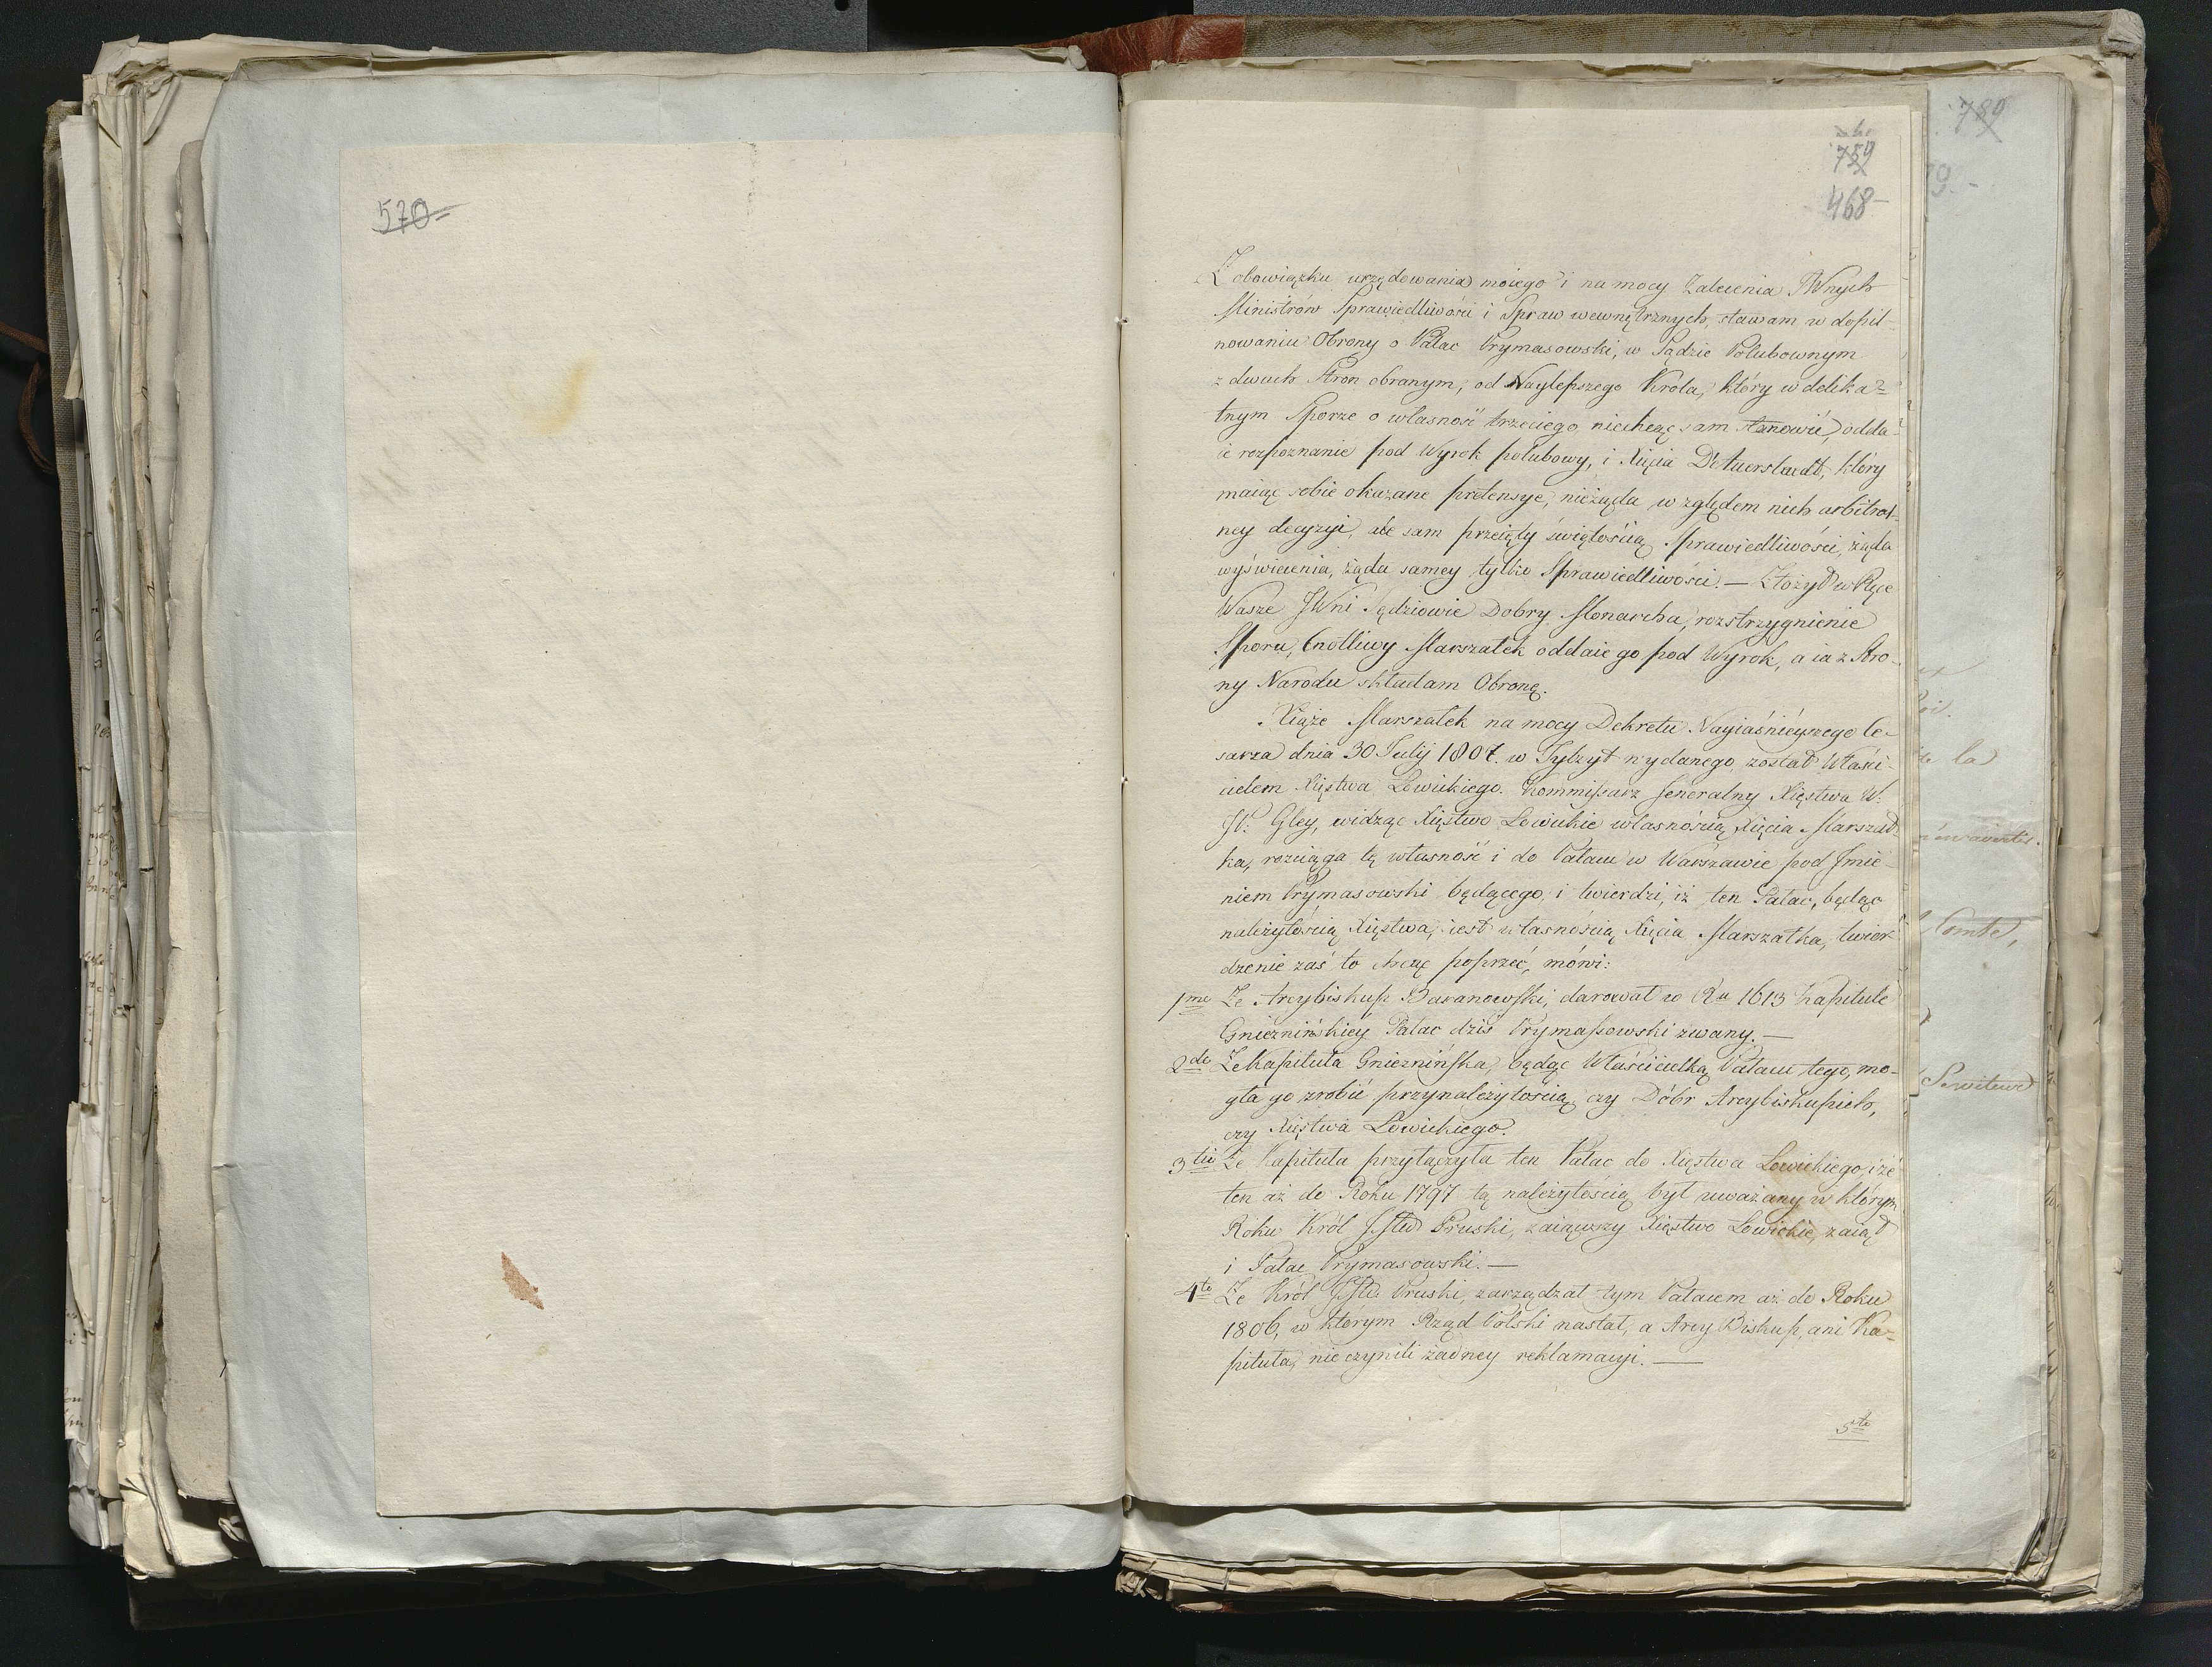 570
759
468
789
Z obowiązku urzędowania moiego i na mocy Zalecenia JWnych
Ministrów Sprawiedliwości i Spraw wewnętrznych, stawam w dopil-
nowaniu Obrony o Pałac Prymasowski, w Sądzie Polubownym
z dwuch Stron obranym, od Naylepszego Króla, który w delika-
tnym Sporze o własność trzeciego niechcąc sam stanowić, odda-
ie rozpoznanie pod Wyrok polubowy, i Xięcia D'Auerstaedt, który
maiąc sobie okazane pretensye, nieżąda względem nich arbitral-
ney decyzyi, ale sam przeięty świętością Sprawiedliwości, żąda
wyświecenia, żąda samey tylko Sprawiedliwości. — Złożył w Ręce
Wasze JWni Sędziowie Dobry Monarcha, rozstrzygnienie
Sporu, Cnotliwy Marszałek oddaie go pod Wyrok, a ia z Stro-
ny Narodu składam Obronę.
Xiąże Marszałek na mocy Dekretu Nayiaśnieyszego Ce-
sarza dnia 30 Julij 1807. w Tylzyt wydanego, został Właści-
cielem Xięstwa Łowickiego. Kommissarz Jeneralny Xięstwa W.
JP. Gley, widząc Xięstwo Łowickie własnością Xięcia Marszał-
ka, rozciąga tę własność i do Pałacu w Warszawie pod Jmie-
niem Prymasowski będącego, i twierdzi, iż ten Pałac, będąc
należytością Xięstwa, iest własnością Xięcia Marszałka, twier-
dzenie zaś to chcąc poprzeć, mówi:
1mo Że Arcybiskup Baranowski, darował w Ru 1613 Kapitule
Gnieznińskiey Pałac dziś Prymasowski zwany. —
2do Że Kapituła Gnieznińska, będąc Właścicielką Pałacu tego, mo-
gła go zrobić przynależytością czy Dóbr Arcybiskupich,
czy Xięstwa Łowickiego.
3tio Że Kapituła przyłączyła ten Pałac do Xięstwa Łowickiego, i że
ten aż do Roku 1797 tą należytością był uważany w którym
Roku Król JMć Pruski, zaiąwszy Xięstwo Łowickie, zaiął
i Pałac Prymasowski. —
4to Że Król JMć Pruski, zarządzał tym Pałacem aż do Roku
1806, w którym Rząd Polski nastał, a Arcy Biskup, ani Ka-
pituła, nie czynili żadney reklamacyi. —
5to
la
Comte,